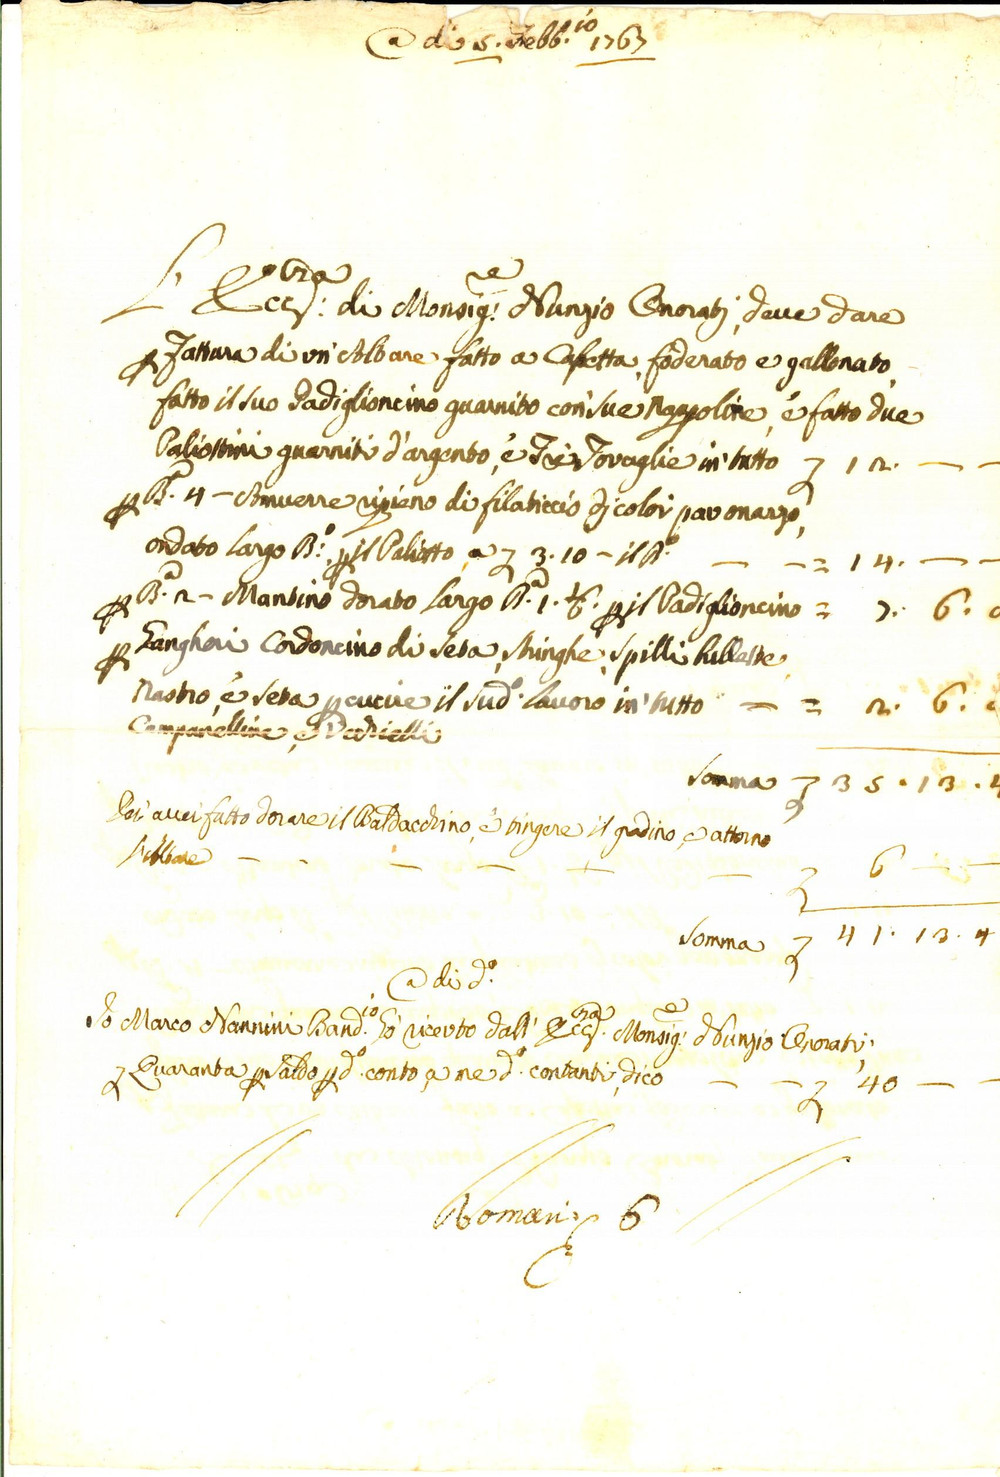 a di 5. Febb.io 1767
L' Ecc.za di Monsig.e Nunzio Onorati, deve dare
p Fattura di un' Altare fatto a Casetta, foderato e gallonato,
fatto il suo Padiglioncino guarnito con sue Nappoline, è fatto due
Paliottini guarniti d'argento, è Tre Tovaglie in tutto £ 12. — —
p B.a 4 — Amuerre ripieno di filaticcio di color pavonazzo,
ondato largo B.o, p il Paliotto, a £ 3. 10 — il B.o — — = 14. — —
p B.a 2 — Mantino dorato largo B.a 1. 1/6. p il Padiglioncino = 7. 6.
p Gangheri Cordoncino di seta, stringhe, spilli bullette,
Nastro, è seta p cucire il sud.o lavoro in tutto — = 2. 6.
Campanelline, e
Somma £ 35. 13. 4
Per aver fatto dorare il Baldacchino, è tingere il gradino, e attorno
l'Altare — — — — — — £ 6 — —
Somma £ 41. 13. 4
a di d.o
Io Marco Nannini Band.io hò ricevto dall' Ecc.za Monsig.e Nunzio Onorati,
£ Quaranta p saldo p d.o conto, a me d.o contanti, dico — — £ 40 — —
Romani 6